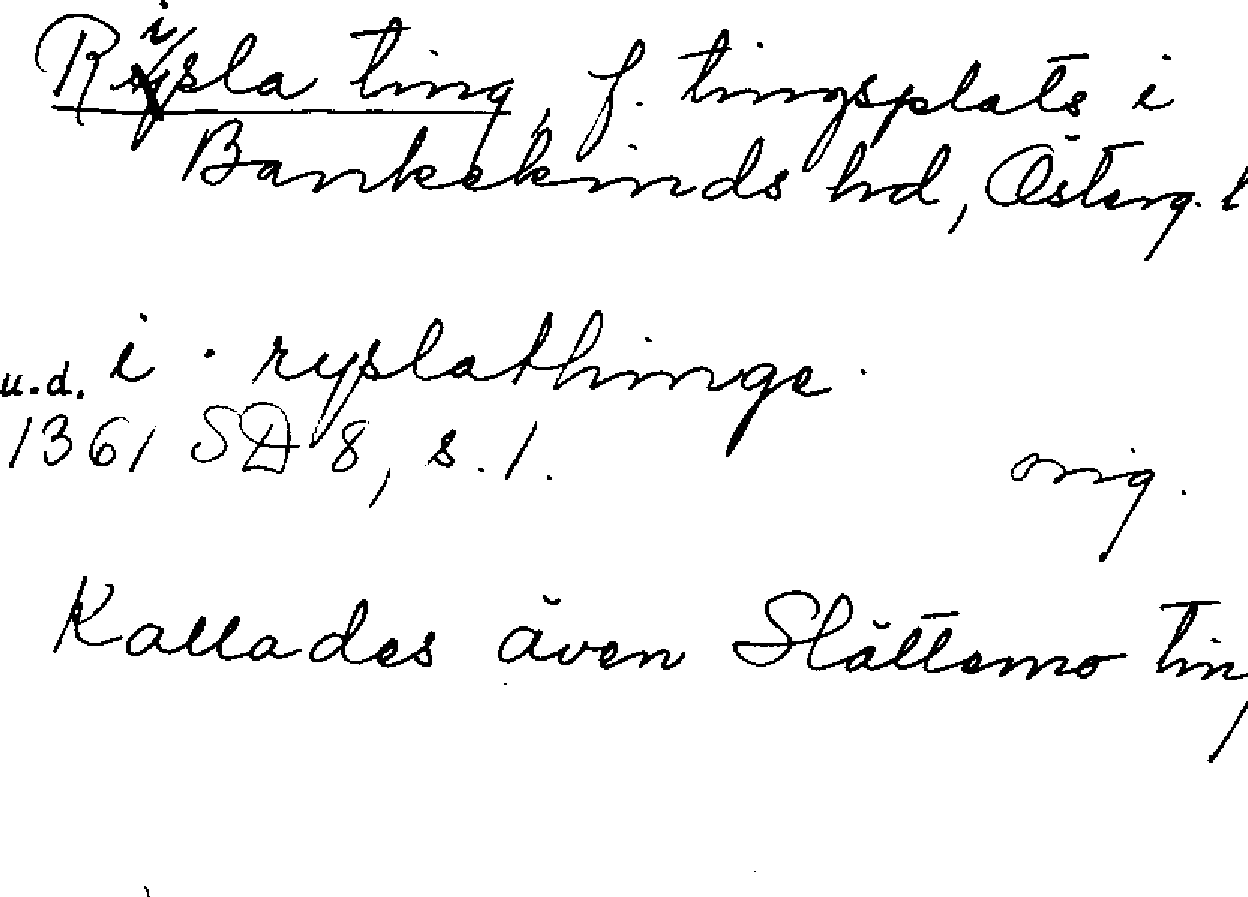 Risla ting, f. tingsplats i
Bankekinds hd, Österg. l
u.d. i · ryslathinge ·
1361 SD 8, s. 1. orig.
Kallades även Slättemo tin